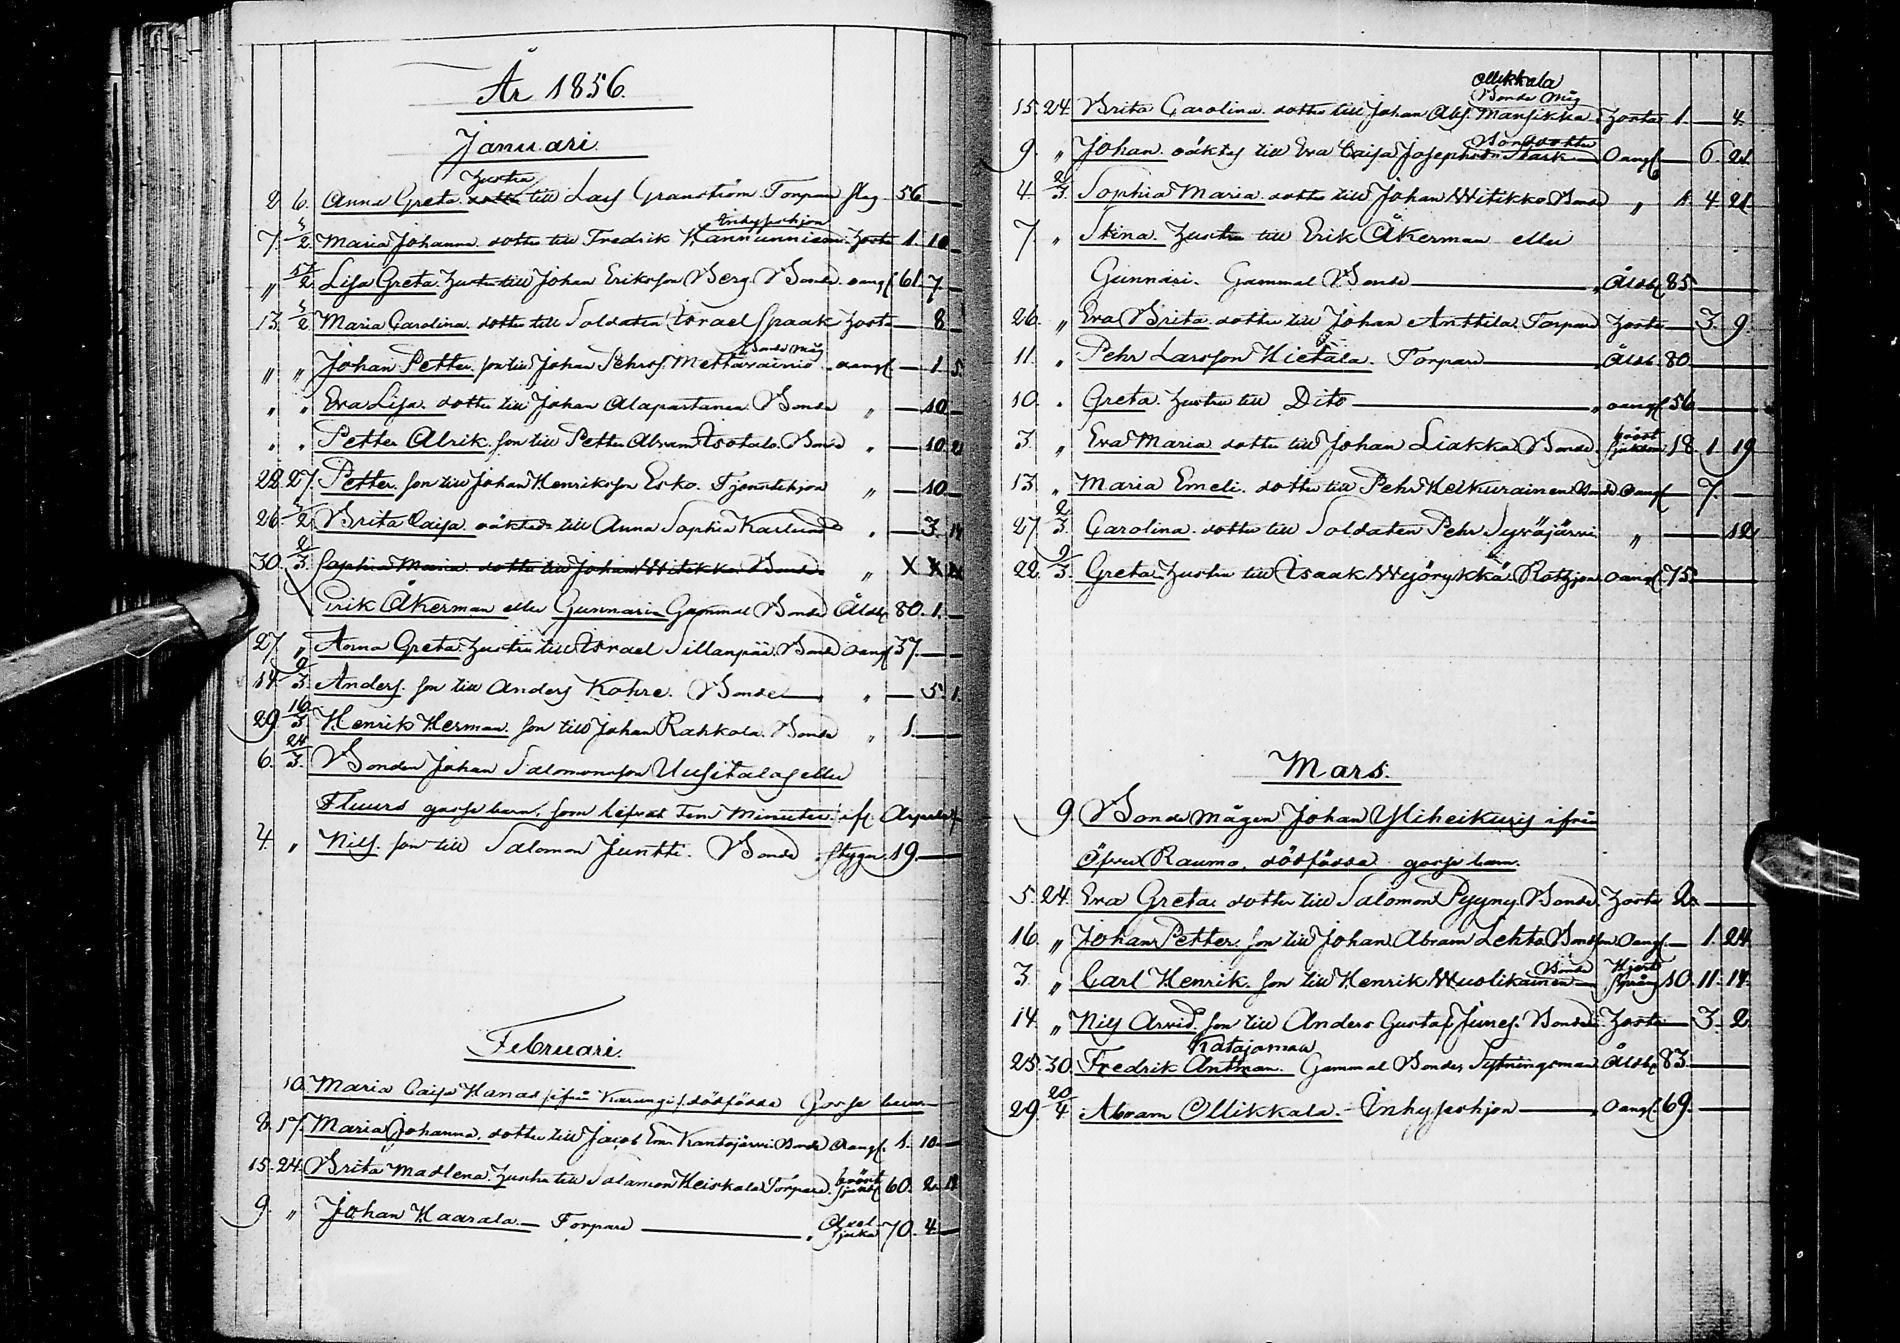 År 1856.
Januari
2 6. Anna Greta hustru till Lars Granström Torpare slag 56
7. 3/2 Maria Johanna dotter till Fredrik Hannunniemi Inhyseshjon 1. 10
" Lisa Greta hustru till Johan Eriksson Berg. Bonde oangf 61. 7
13. 3/2 Maria Carolina dotter till Soldaten Israel Spaak 8
" " Johan Petter. son till Johan Pehrs. Mettävainio Bonde Måg oangf 1. 5
" " Eva Lisa. dotter till Johan Alapartanen Bonde " 10
" " Petter Alrik. son till Petter Abram Isotalo. Bonde " 10. 21
22. 27. Petter. son till Johan Henriksson Esko. Tjenstehjon " 10
26. 3/2 Brita Caisa. oäkta till Anna Sophia Karlund 3. 14
30. 2/3 Sophia Maria. dotter till Johan Witikka. Bonde " X X
Erik Åkerman eller Gunnari Gammal Bonde Åld 80. 1.
27. " Anna Greta. hustru till Israel Sillanpää. Bonde oangf 37.
14. 2/3 Anders. son till Anders Kohre. Bonde " 5. 1.
29. 16/3 Henrik Herman. son till Johan Rahkola. Bonde " 1.
6. 24/3 Bonden Johan Salomonsson Uusitalas eller
Fluurs gosse barn, som lefvat Fem Minuter.
4 " Nils. son till Salomon Juntti. Bonde. stygn. 19.
Februari.
10. Maria Caisa Hanas ifrån Karungi dödfödda Gosse barn
8. 17. Maria Johanna. dotter till Jacob Em. Kantojärvi Bonde oangf. 1. 10
15. 24. Brita Madlena. hustru till Salamon Heiskala Torpare. bröst sjukd 60. 2. 18
9. " Johan Haarala Torpare 70. 4
15. 24. Brita Carolina. dotter till Johan Abs. Mansikka Ollikkala Bonde Måg 1. 4.
9. " Johan. oäkta till Eva Caisa Josephsdr. Stark Bondedotter Oangf 6. 21
4 2/3 Sophia Maria. dotter till Johan Witikko Bonde " 1. 4. 21
7. " Stina. hustru till Erik Åkerman eller
Gunnari. Gammal Bonde Åld 85
26. " Eva Brita. dotter till Johan Anttila. Torpare 3. 9.
11. " Pehr Larsson Hietala. Torpare Åld. 80
10. " Greta. hustru till Dito oangf 56
3. " Eva Maria. dotter till Johan Liakka. Bonde. bröst sjukdom 18. 1. 19
13. " Maria Emeli. dotter till Pehr Keikurainen Bonde Oangf 7.
27. 2/3 Carolina dotter till Soldaten Pehr Syväjärvi " 12
22. 9/3 Greta. hustru till Isaak Wyörykkä Rothjon oangf 75
Mars.
9. Bonde mågen Johan Yliheikurs ifrån
Öfver Raumo, dödfödda gosse barn.
5. 24. Eva Greta. dotter till Salomon Pyyny. Bonde. 2.
16. " Johan Petter. son till Johan Abram Lehto Bondeson Oangf. 1. 24.
3. " Carl Henrik. son till Henrik Wuolikainen Bonde 10. 11. 14.
14. " Nils Arvid. son till Anders Gustaf Junes. Bonde. 3. 2.
25. 30. Fredrik Antman. Katajamaa Gammal Bonde, Sytningsman Åld 83
29. 20/4 Abram Ollikkala. Inhyseshjon Oangf. 69.